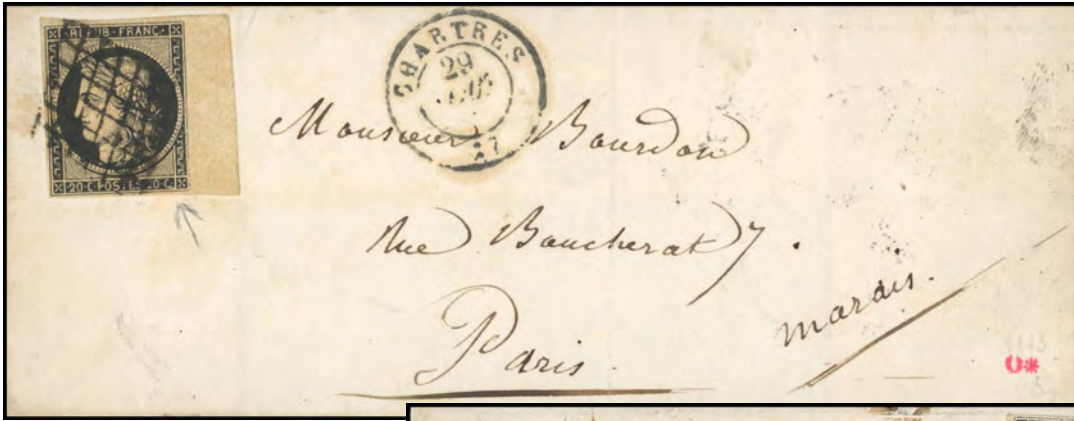 REPUB·FRANC·
20·C·POSTES·20·C·
CHARTRES
29
27
Monsieur Bourdon
Rue Boucherat 7.
Paris
marais.